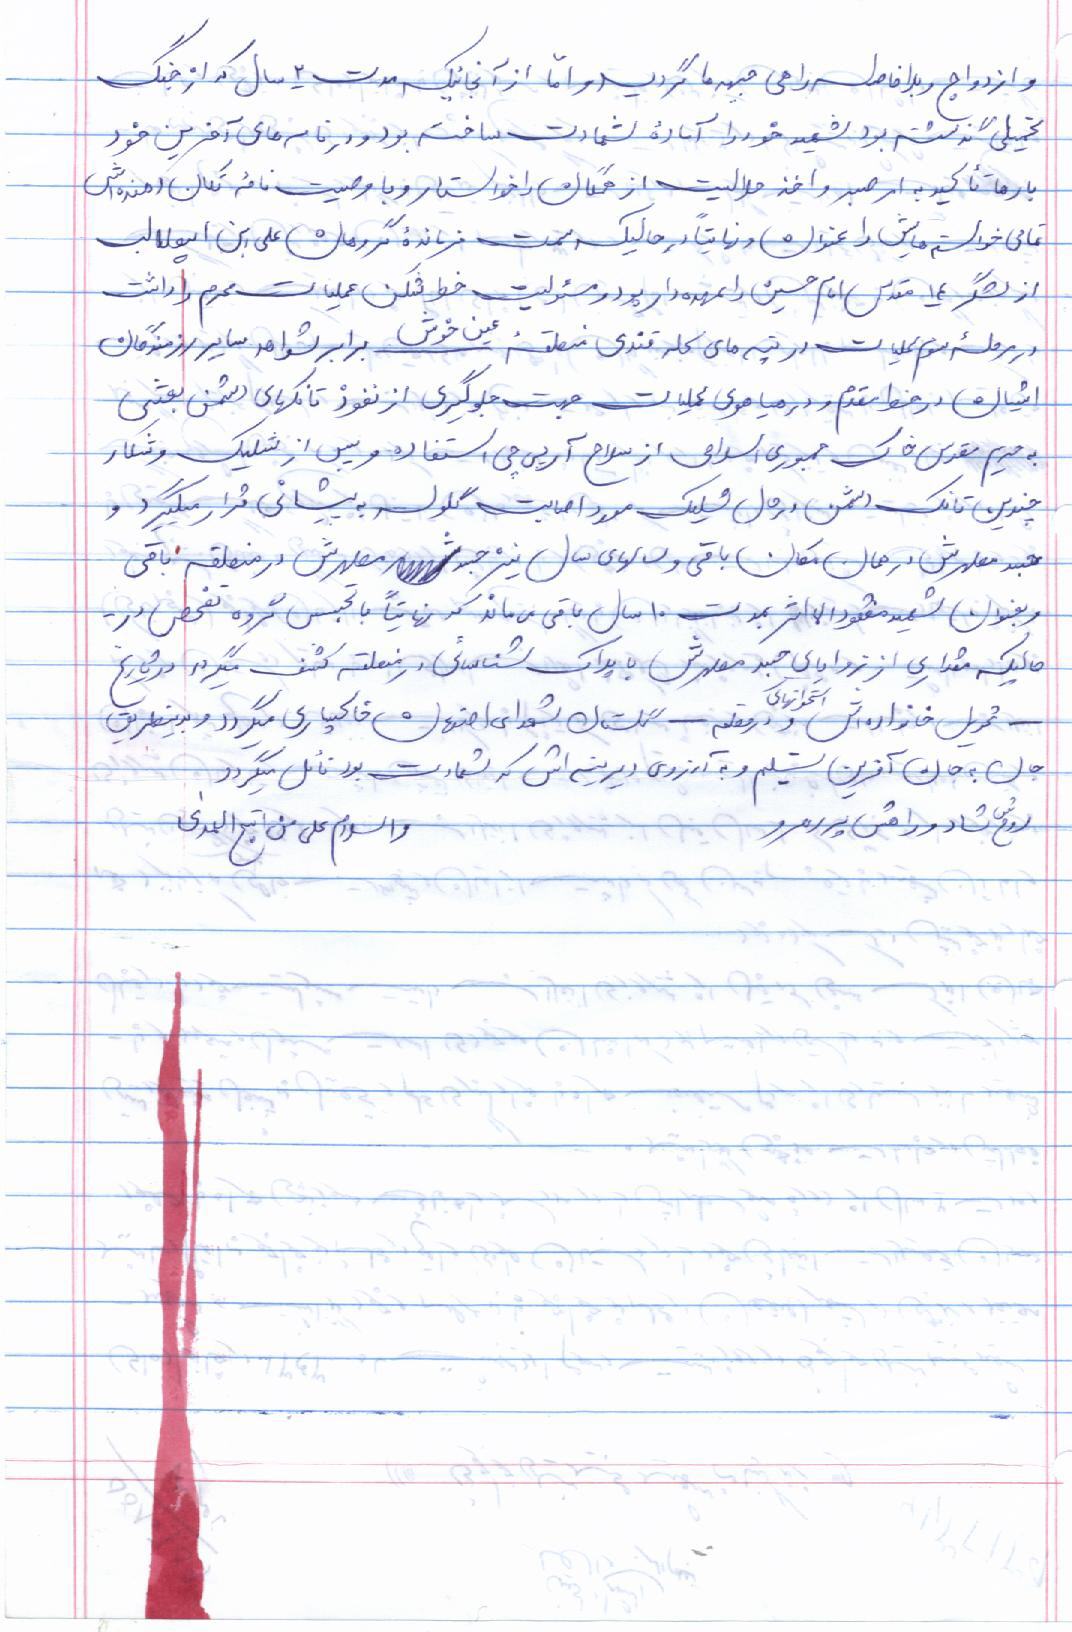 و ازدواج و بلافاصله راهی جبهه ها گردید و امّا از آنجائیکه مدت ۲ سال که از جنگ
تحمیلی گذشته بود شهید خود را آمادۀ شهادت ساخته بود و در نامه های آخرین خود
بارها تأکید به امر صبر و اخذ حلالیت از همگان را خواستار و با وصیت نامه تکان دهنده اش
تمامی خواسته هایش را عنوان و نهایتاً در حالیکه سمت فرماندۀ گردهان علی ابن ابیطالب
از لشگر ۱۴ مقدس امام حسین را عهده دار بود و مسئولیت خط شکن عملیات محرم را داشت
در مرحلۀ سوم عملیات در تپه های کله قندی منطقۀ عین خوش برابر شواهد سایر رزمندگان
ایشان در خط مقدم و در هیاهوی عملیات جهت جلوگیری از نفوذ تانکهای دشمن بعثی
به حریم مقدس خاک جمهوری اسلامی از سلاح آرپی جی استفاده و پس از شلیک و شکار
چندین تانک دشمن در حال شلیک مورد اصابت گلوله به پیشانی قرار میگیرد و
جسد مطهرش در همان مکان باقی و سالهای سال نیز جسد مطهرش در منطقه باقی
و بعنوان شهید مفقودالاثر بمدت ۱۰ سال باقی می ماند که نهایتاً با تجسس گروه تفحص در
حالیکه مقداری از بقایای جسد مطهرش با پلاک شناسائی در منطقه کشف میگردد در تاریخ
تحویل خانواده اش و استخوانهای در قطعه گلستان شهدای اصفهان خاکسپاری میگردد و بدینطریق
جان به جان آفرین تسلیم و به آرزوی دیرینه اش که شهادت بود نائل میگردد
روحش شاد و راهش پر رهرو والسلام علی من اتبع الهدی